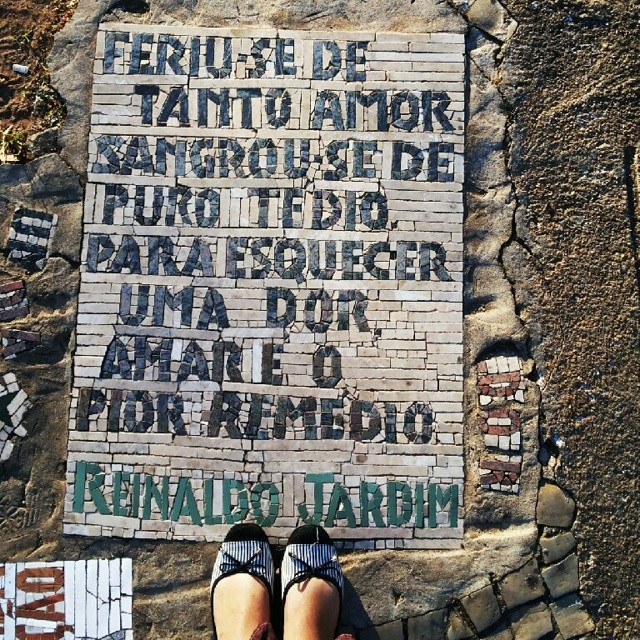 FERIU-SE DE
TANTO AMOR.
SANGROU-SE DE
PURO TÉDIO.
PARA ESQUECER
UMA DOR
AMAR É O
PIOR REMÉDIO
REINALDO JARDIM